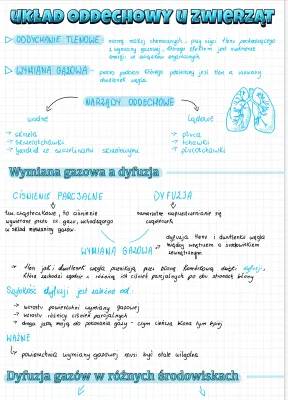 UKŁAD ODDECHOWY U ZWIERZĄT
ODDYCHANIE TLENOWE
reakcji chemicznych, przy użyciu tlenu pochodzącego
z wymiany gazowej, którego efektem jest uwolnienie
energii ze związków organicznych
WYMIANA GAZOWA
proces podczas którego pobierany jest tlen a usuwany
dwutlenek węgla
NARZĄDY ODDECHOWE
wodne
lądowe
→ skrzela
→ płuca
→ skrzelotchawki
→ tchawki
→ płucotchawki
Wymiana gazowa a dyfuzja
CIŚNIENIE PARCJALNE
DYFUZJA
tzw. cząstkowe, to ciśnienie
samorzutne rozprzestrzenianie się
wywierane przez dany gaz, wchodzącego
cząsteczek
w skład mieszaniny gazów.
WYMIANA GAZOWA
dyfuzja tlenu i dwutlenku węgla
między wnętrzem a środowiskiem
zewnętrznym
→ tlen jak i dwutlenek węgla przenikają przez błonę komórkową dzięki dyfuzji,
która zachodzi zgodnie z różnicą ich ciśnień parcjalnych po obu stronach błony
Szybkość dyfuzji jest zależna od:
→ wzrostu powierzchni wymiany gazowej
→ wzrostu różnicy ciśnień parcjalnych
→ droga jaką mają do pokonania gazy - czym cieńsza błona tym lepiej
WAŻNE
→ powierzchnia wymiany gazowej musi być stale wilgotna
Dyfuzja gazów w różnych środowiskach